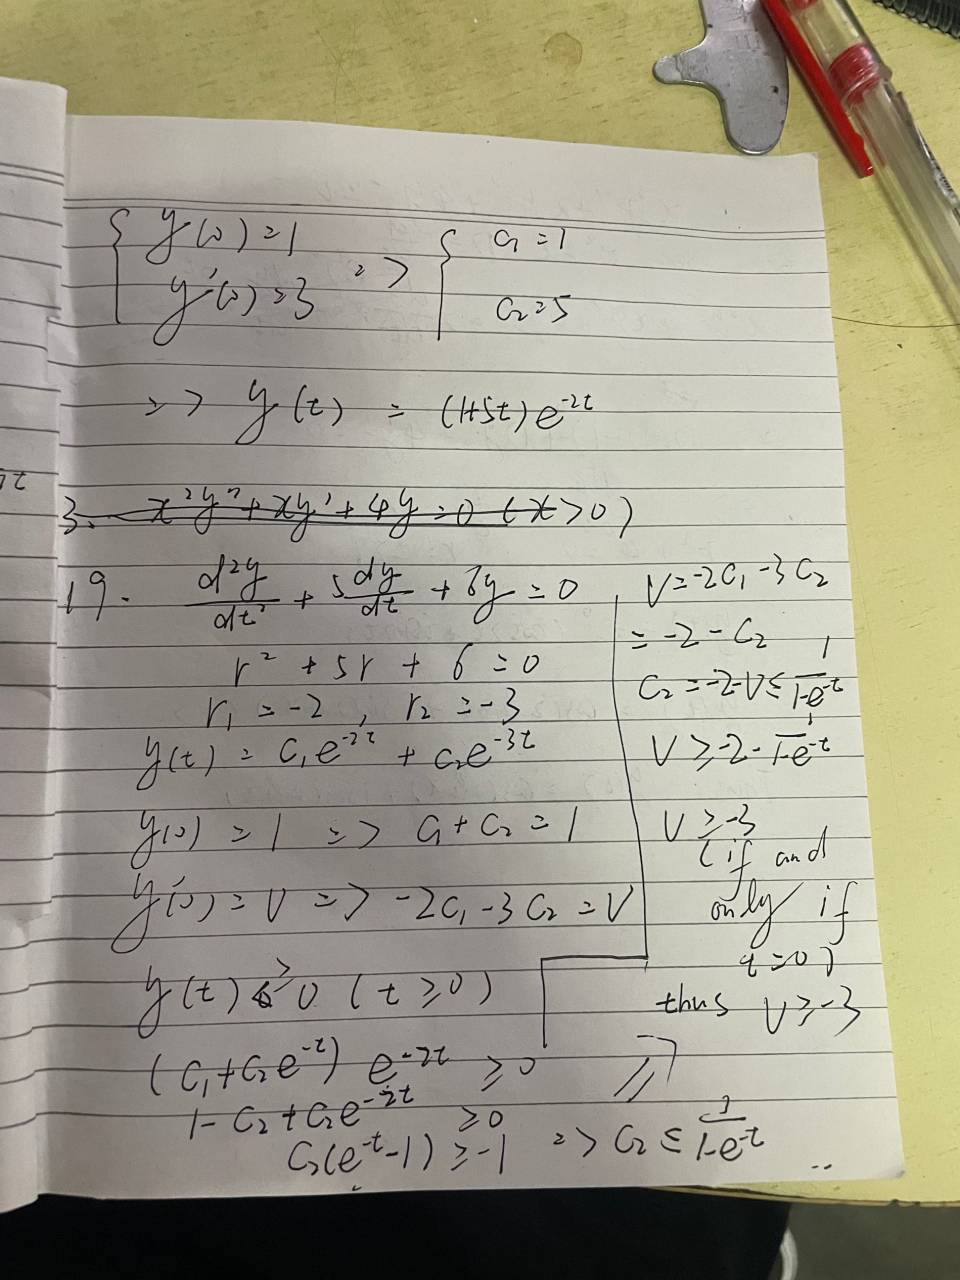 { y(0)=1 => { c₁=1
y'(0)=3 c₂=5
=> y(t) = (1+5t)e^{-2t}
3. x²y''+xy'+4y=0 (x>0)
19. d²y/dt² + 5dy/dt + 6y = 0
r² + 5r + 6 = 0
r₁ = -2, r₂ = -3
y(t) = c₁e^{-2t} + c₂e^{-3t}
y(0) = 1 => c₁+c₂=1
y'(0) = V => -2c₁-3c₂=V
y(t) > 0 (t≥0)
(c₁+c₂e^{-t}) e^{-2t} ≥0
1-c₂+c₂e^{-2t} ≥0
c₂(e^{-t}-1) ≥-1 => c₂ ≤ 1/(1-e^{-t})
=>
V=-2c₁-3c₂
=-2-c₂
c₂=-2-V≤ 1/(1-e^{-t})
V≥-2- 1/(1-e^{-t})
V≥-3
(if and
only if
t=0)
thus V≥-3